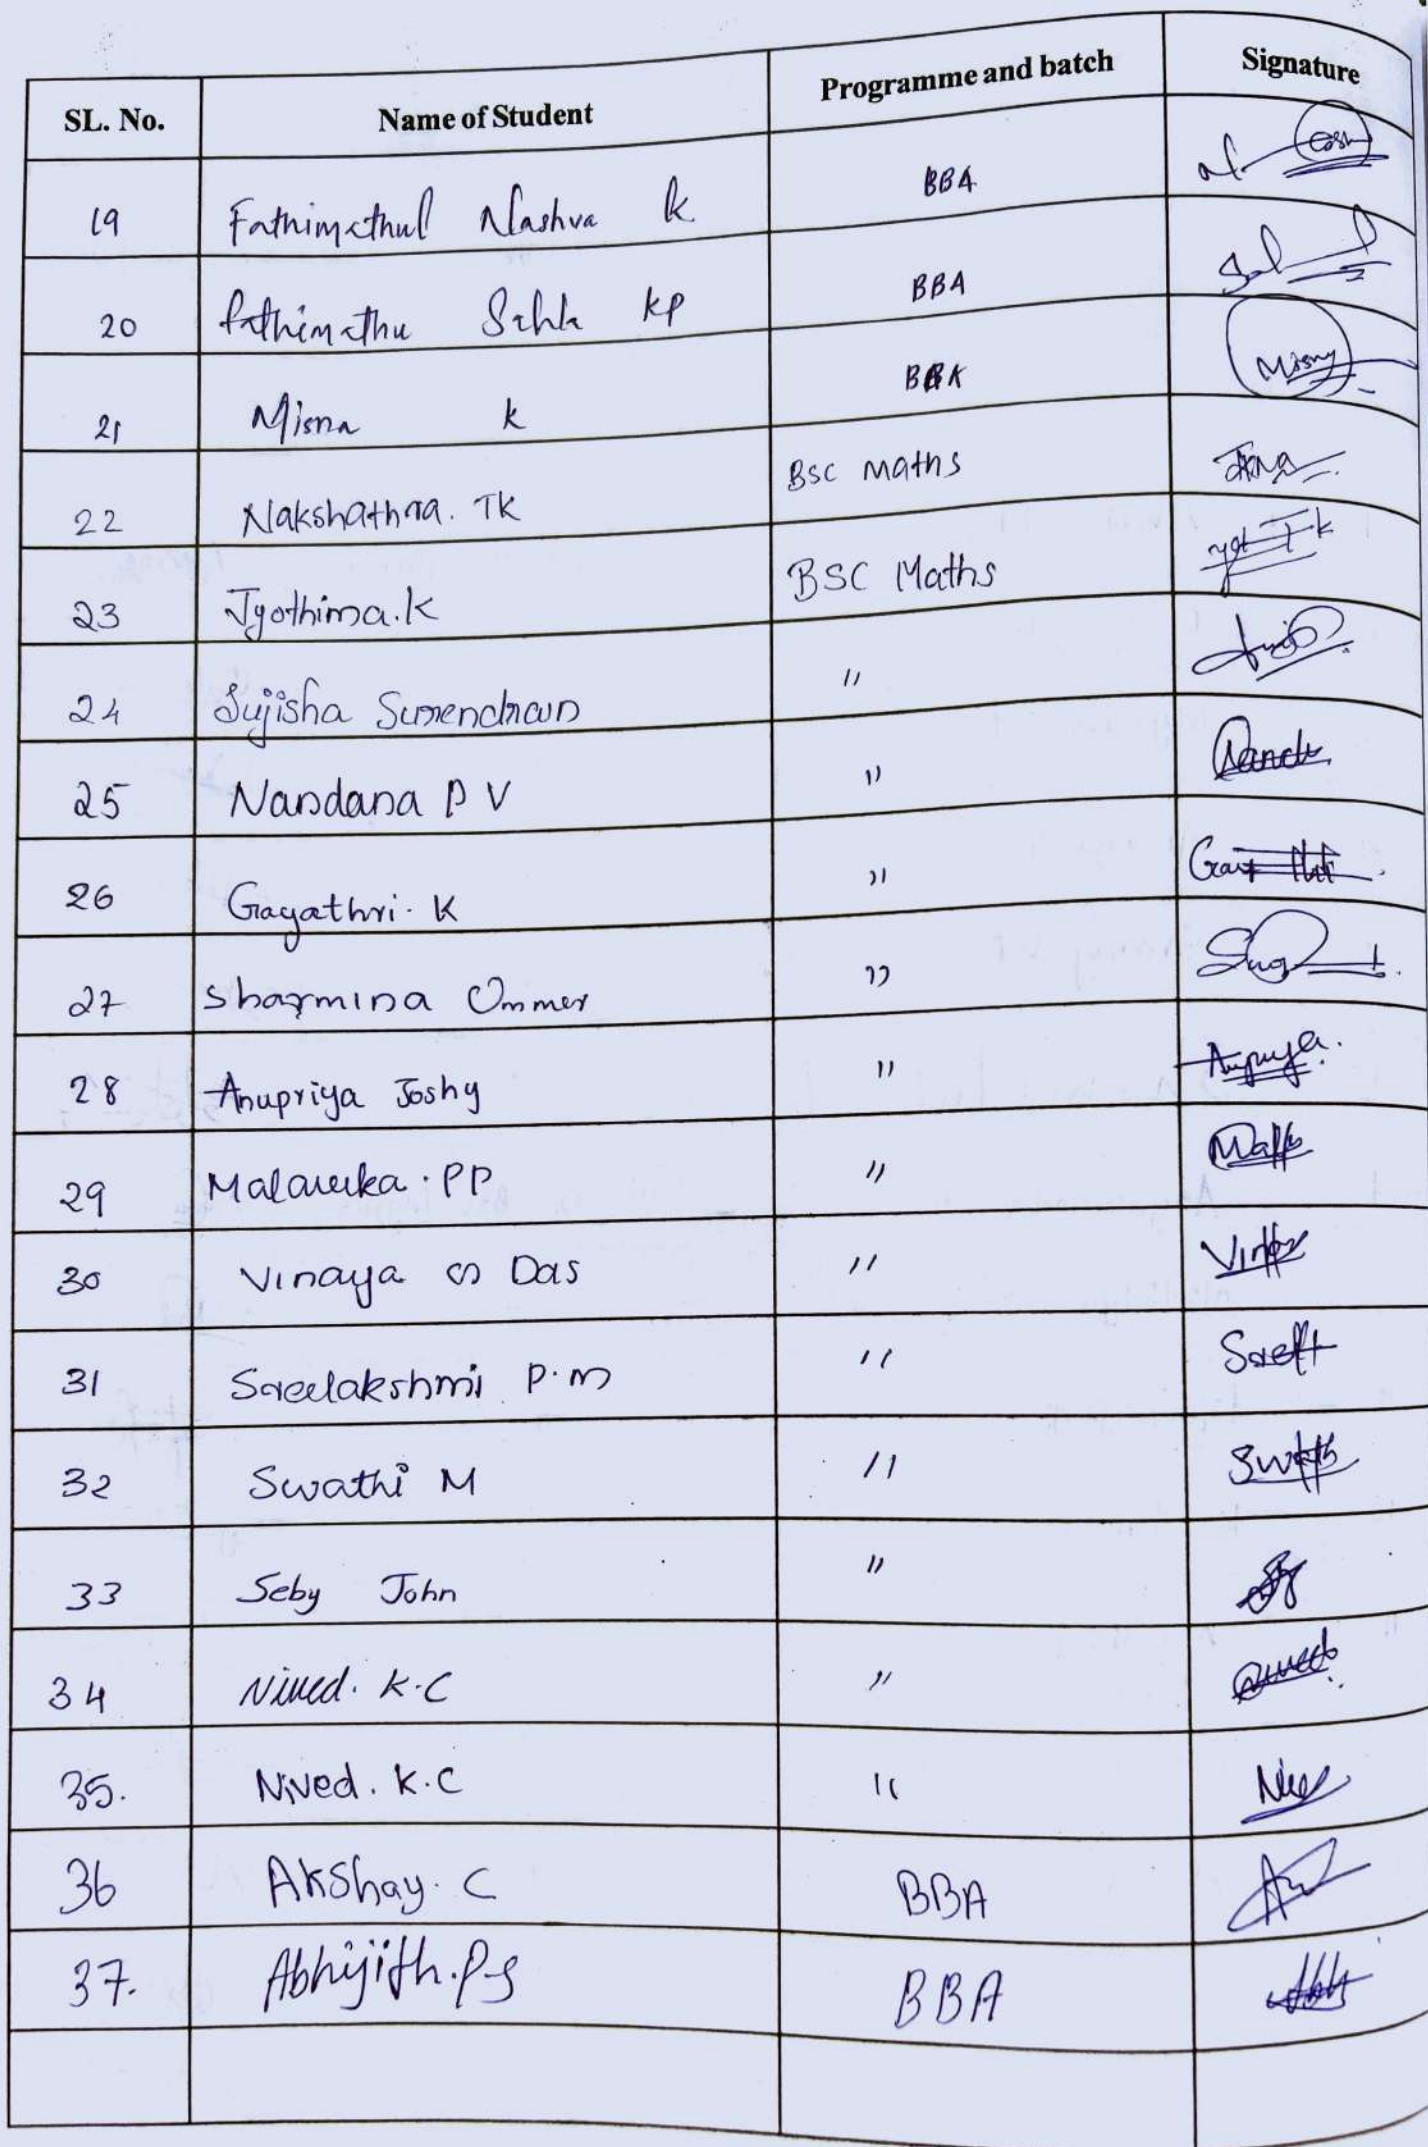 SL. No. Name of Student Programme and batch Signature
19 Fathimathul Nashva K BBA
20 Fathimathu Sahla KP BBA
21 Misna K Misny
22 Nakshathra. TK BSC Maths
23 Jyothima.K BSC Maths
24 Sujisha Surendran "
25 Nandana P V "
26 Gayathri. K "
27 Sharmina Ommer "
28 Anupriya Joshy "
29 Malavika. PP "
30 Vinaya Das "
31 Sreelakshmi P.M "
32 Swathi M "
33 Seby John "
34 Nived. K.C "
35. Nived. K.C "
36 Akshay. C BBA
37. Abhijith.PS BBA